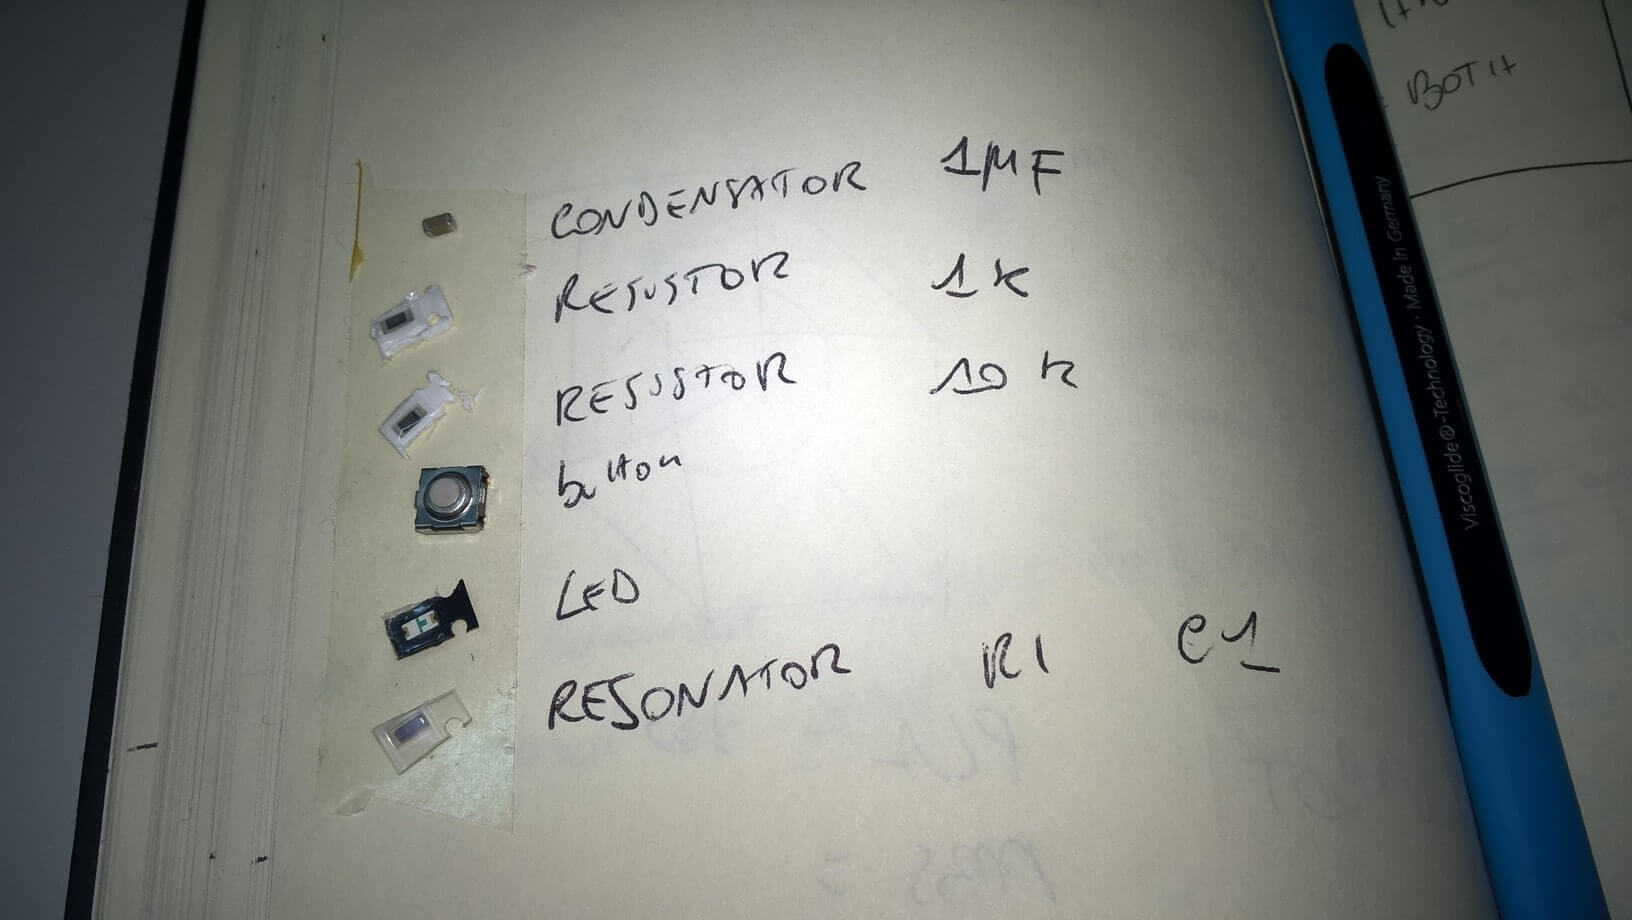 CONDENSATOR 1µF
RESISTOR 1K
RESISTOR 10 K
button
LED
RESONATOR R1 C1
BOTH
Viscoglide®-Technology · Made in Germany